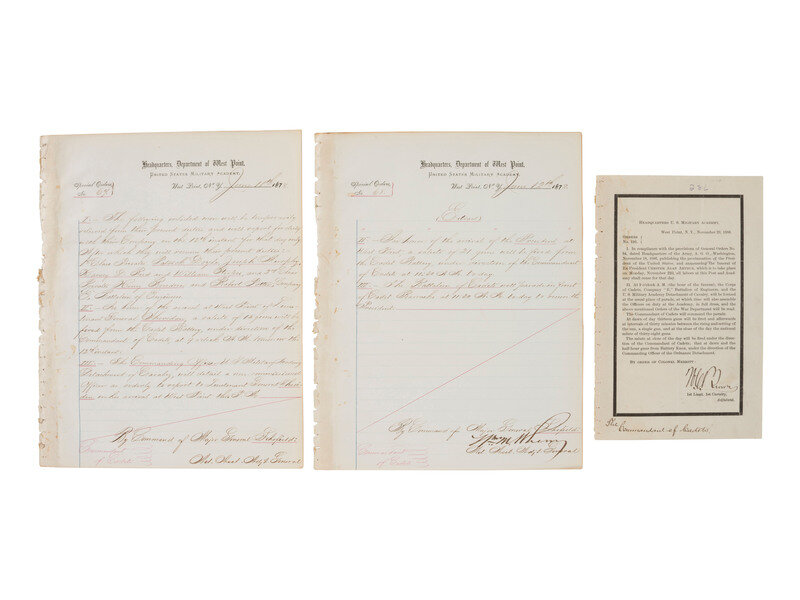 Headquarters, Department of West Point,
United States Military Academy,
West Point, N.Y. June 187
Special Orders
No.
I. The following enlisted men will be temporarily
relieved from their present duties and will report for duty
with their Company on the 12th instant for that day only
after which they will resume their present duties:
Patrick Joseph
and William and 2nd Class
Company
E. Battalion of Engineers
II. At the time of the arrival at West Point of Lieu-
tenant General Sheridan, a salute of 15 guns will be
fired from the Cadet Battery, under direction of the
Commandant of Cadets at o'clock on the
12th instant.
III. The Commanding Officer U.S. Military Academy
Detachment of Cavalry, will detail a non-commissioned
officer as orderly to report to Lieutenant General Sheri-
dan upon arrival at West Point this P.M.
By Command of Major General Schofield:
Commandant
of Cadets
Asst. Adjt. General
Headquarters, Department of West Point,
United States Military Academy,
West Point, N.Y. June 12th 187
Special Orders
No.
(Extract)
II. At the time of the arrival of the President at
West Point a salute of 21 guns will be fired from
the Cadet Battery under direction of the Commandant
of Cadets at 11.20 A.M. to-day.
III. The Battalion of Cadets will parade in front
of Cadet Barracks at 11.20 A.M. to-day to receive the
President.
By Command of Major General Schofield:
Wm. M. Wherry
Commandant
of Cadets
Asst. Adjt. General
Headquarters U. S. Military Academy,
West Point, N. Y., November 21, 1886.
Orders
No.
I. In compliance with the provisions of General Orders No.
84, dated Headquarters of the Army, A. G. O., Washington,
November 18, 1886, publishing the proclamation of the Presi-
dent of the United States, and announcing the funeral of
Ex-President Chester Alan Arthur, which is to take place
on Monday, November 22d, all labors at this Post and Acad-
emy shall cease for that day.
II. At 9 o'clock A. M. (the hour of the funeral), the Corps
of Cadets, Company "E," Battalion of Engineers, and the
U. S. Military Academy Detachment of Cavalry, will be formed
at the usual place of parade, at which time will also assemble
the Officers on duty at the Academy, in full dress, and the
above mentioned Orders of the War Department will be read.
The Commandant of Cadets will command the parade.
At dawn of day thirteen guns will be fired and afterwards
at intervals of thirty minutes between the rising and setting of
the sun, a single gun, and at the close of the day the national
salute of thirty-eight guns.
The salute at close of the day will be fired under the direc-
tion of the Commandant of Cadets; that at dawn and the
half-hour guns from Battery Knox, under the direction of the
Commanding Officer of the Ordnance Detachment.
By order of Colonel Merritt:
1st Lieut. 1st Cavalry,
Adjutant.
The Commandant of Cadets.